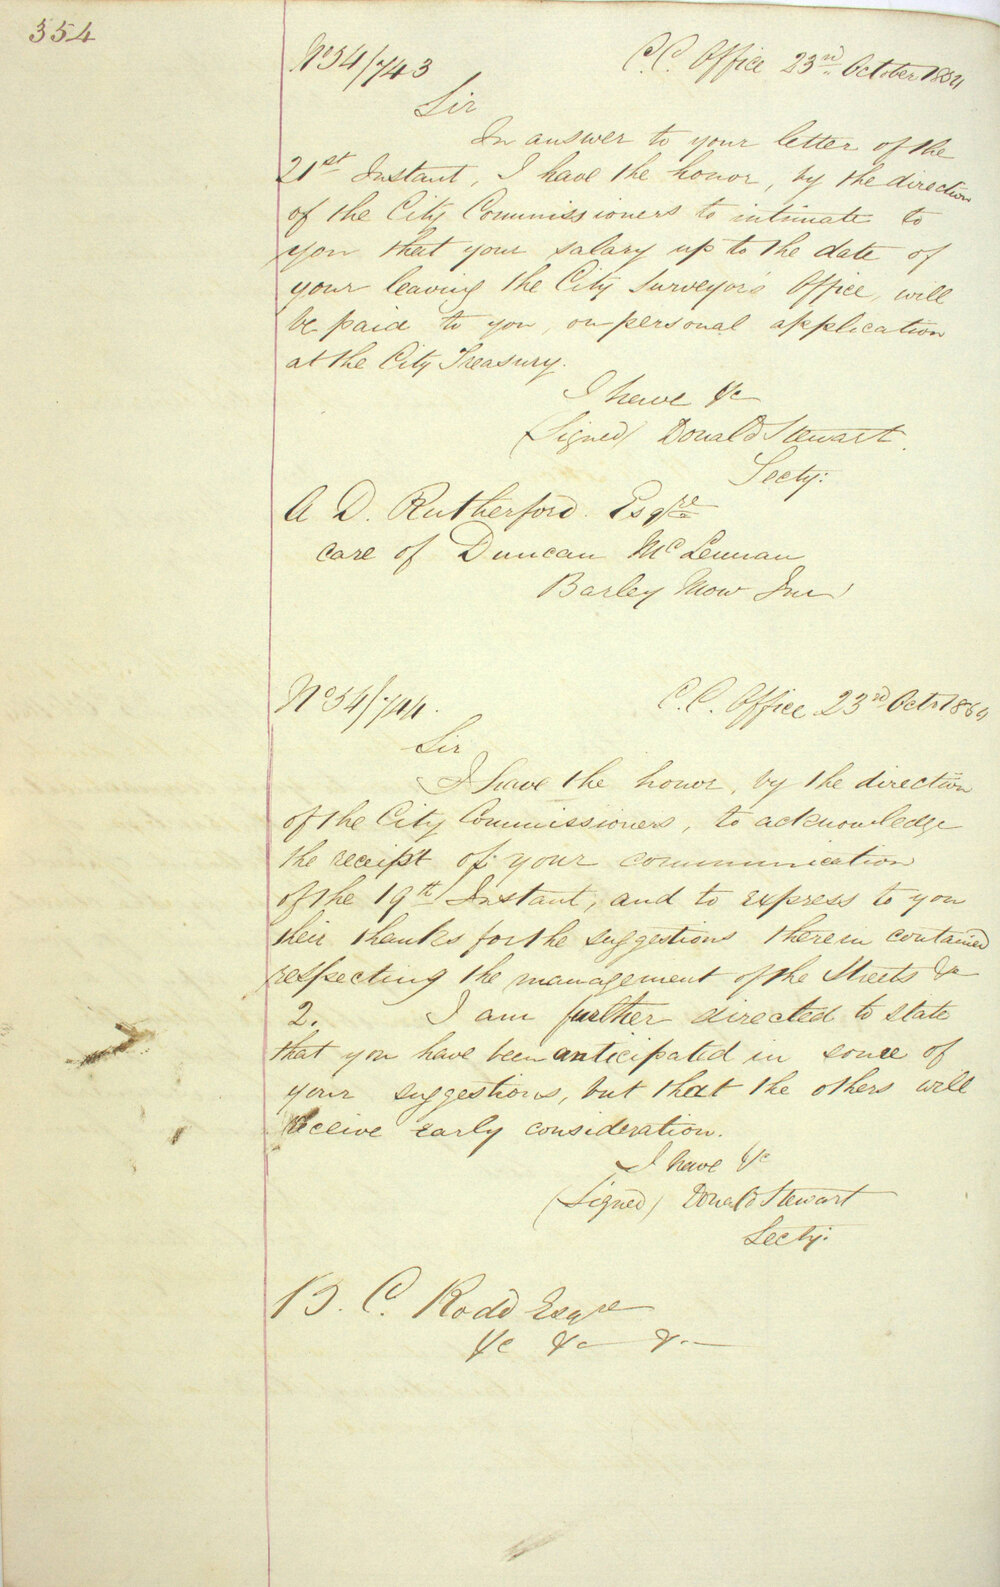 354
No 54/743 C.C. Office 23rd October 1854
Sir
In answer to your letter of the
21st Instant, I have the honor, by the direction
of the City Commissioners to intimate to
you that your salary up to the date of
your leaving the City Surveyor's Office, will
be paid to you, on personal application
at the City Treasury.
I have &c
(Signed) Donald Stewart
Secty:
A D. Rutherford Esqre
care of Duncan McLennan
Barley Mow Inn
No 54/744. C.C. Office 23rd Octr 1854
Sir
I have the honor, by the direction
of the City Commissioners, to acknowledge
the receipt of your communication
of the 19th Instant, and to express to you
their thanks for the suggestions therein contained
respecting the management of the Streets &c
2. I am further directed to state
that you have been anticipated in some of
your suggestions, but that the others will
receive early consideration.
I have &c
(Signed) Donald Stewart
Secty:
B. C. Rodd Esqre
&c &c &c